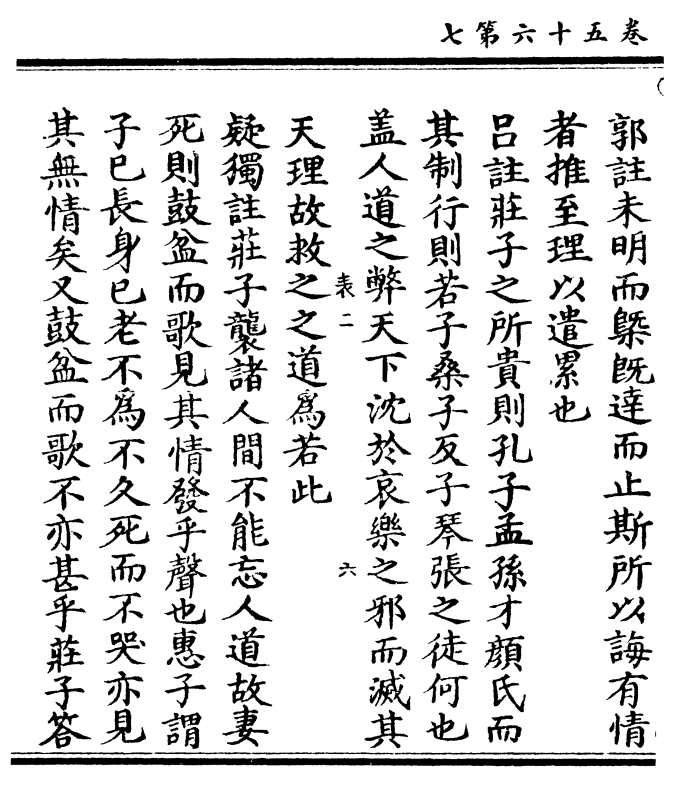 卷五十六第七
郭註未明而槩旣達而止斯所以誨有情
者推至理以遣累也
呂註莊子之所貴則孔子孟孫才顏氏而
其制行則若子桑子反子琴張之徒何也
盖人道之弊天下沈於哀樂之邪而滅其
天理故救之之道爲若此
表二
六
疑獨註莊子襲諸人間不能忘人道故妻
死則鼓盆而歌見其情發乎聲也惠子謂
子已長身已老不爲不久死而不哭亦見
其無情矣又鼓盆而歌不亦甚乎莊子答